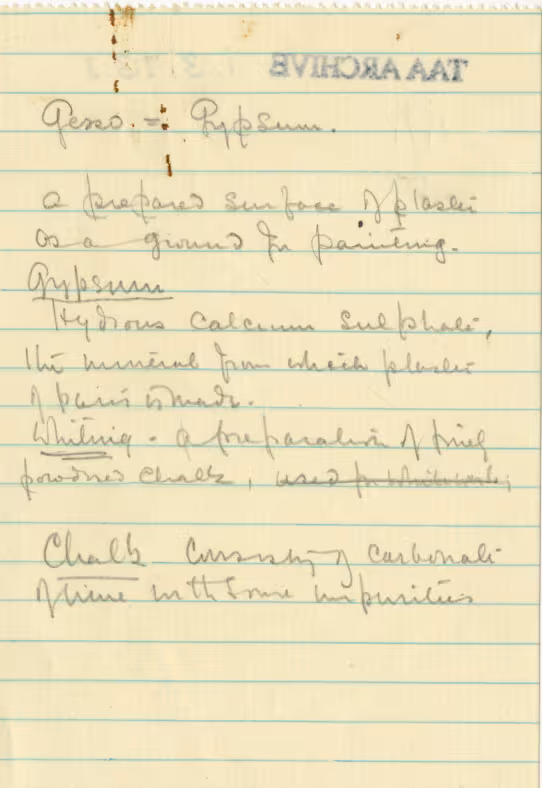 TAA ARCHIVE
Gesso = Gypsum.
a prepared surface of plaster
as a ground for painting.
Gypsum
Hydrous Calcium Sulphate,
the mineral from which plaster
of paris is made.
Whiting - a preparation of finely
powdered chalk, used for whitewash,
Chalk Consisting of Carbonate
of lime with some impurities